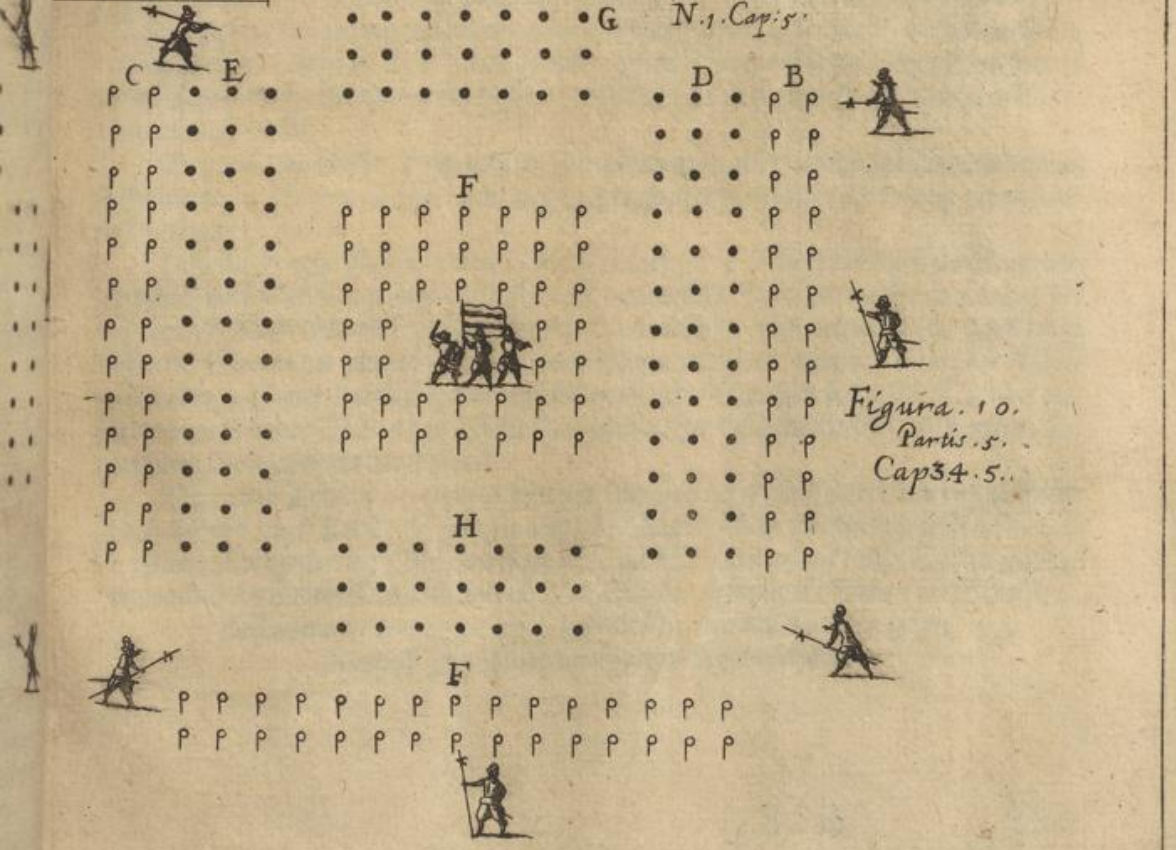 G N.1.Cap:5.
C E D B
F
Figura.10.
Partis.5.
Cap34.5..
H
F